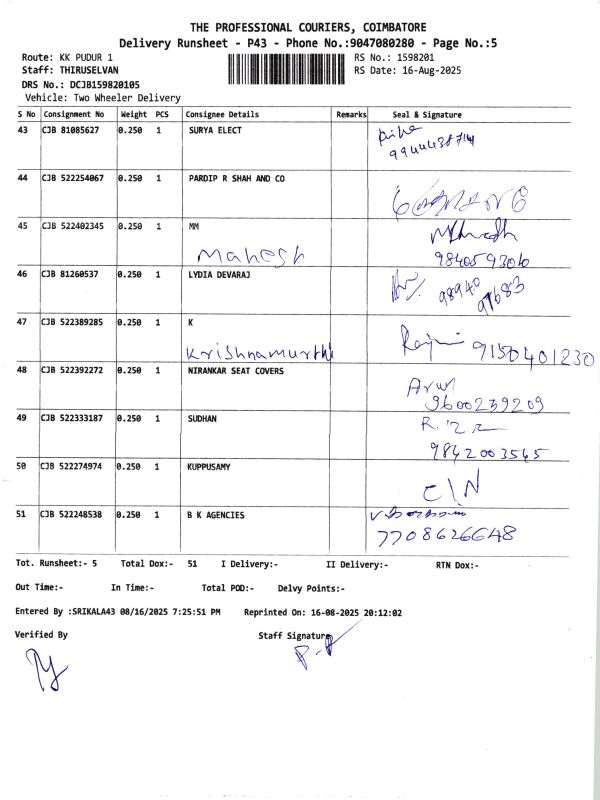 THE PROFESSIONAL COURIERS, COIMBATORE
Delivery Runsheet - P43 - Phone No.:9047080280 - Page No.:5
Route: KK PUDUR 1 RS No.: 1598201
Staff: THIRUSELVAN RS Date: 16-Aug-2025
DRS No.: DCJB159820105
Vehicle: Two Wheeler Delivery
S No Consignment No Weight PCS Consignee Details Remarks Seal & Signature
43 CJB 81085627 0.250 1 SURYA ELECT
44 CJB 522254067 0.250 1 PARDIP R SHAH AND CO
45 CJB 522402345 0.250 1 MM
Mahesh 9840593010
46 CJB 81260537 0.250 1 LYDIA DEVARAJ
98940
97683
47 CJB 522389285 0.250 1 K
Krishnamurthi 9150401230
48 CJB 522392272 0.250 1 NIRANKAR SEAT COVERS
Arun
9600239209
49 CJB 522333187 0.250 1 SUDHAN
9842003545
50 CJB 522274974 0.250 1 KUPPUSAMY
51 CJB 522248538 0.250 1 B K AGENCIES
7708626648
Tot. Runsheet:- 5 Total Dox:- 51 I Delivery:- II Delivery:- RTN Dox:-
Out Time:- In Time:- Total POD:- Delvy Points:-
Entered By :SRIKALA43 08/16/2025 7:25:51 PM Reprinted On: 16-08-2025 20:12:02
Verified By Staff Signature